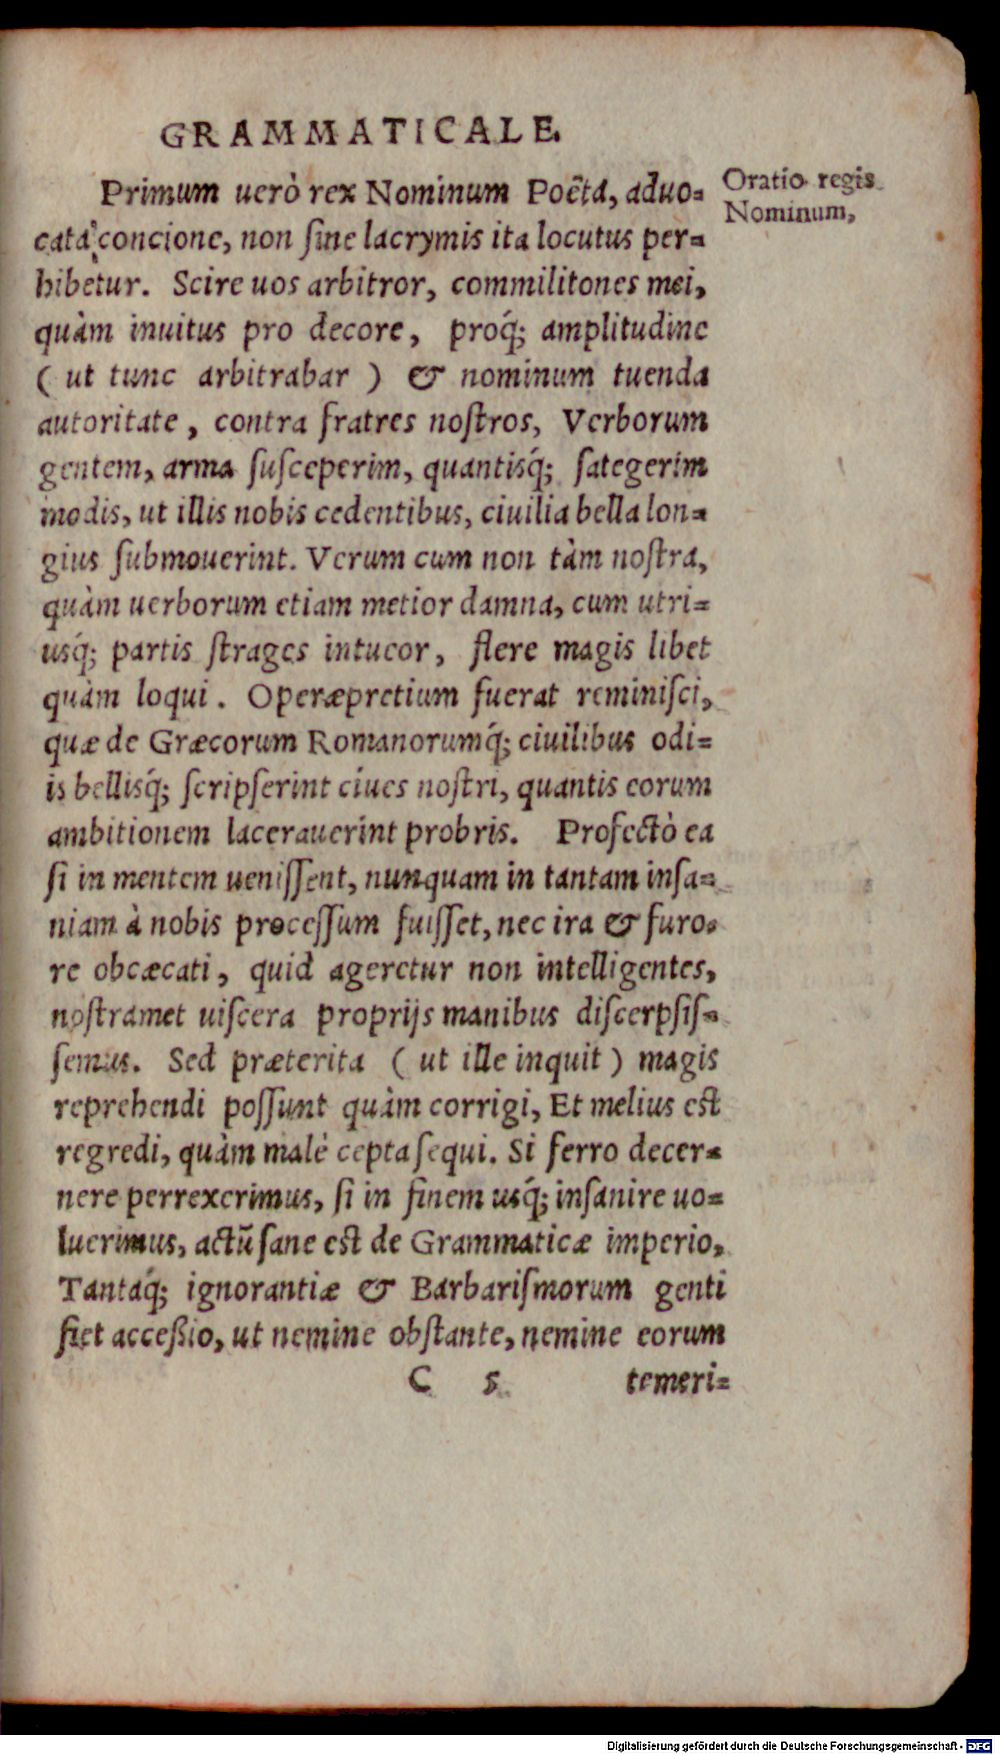 GRAMMATICALE.
Primum uerò rex Nominum Poëta, aduo-
cata concione, non ſine lacrymis ita locutus per-
hibetur. Scire uos arbitror, commilitones mei,
quàm inuitus pro decore, proq́; amplitudine
( ut tunc arbitrabar ) & nominum tuenda
autoritate, contra fratres noſtros, Verborum
gentem, arma ſuſceperim, quantisq́; ſategerim
modis, ut illis nobis cedentibus, ciuilia bella lon-
gius ſubmouerint. Verum cum non tàm noſtra,
quàm uerborum etiam metior damna, cum utri-
usq́; partis ſtrages intueor, flere magis libet
quàm loqui. Operæpretium fuerat reminiſci,
quæ de Græcorum Romanorumq́; ciuilibus odi-
is bellisq́; ſcripſerint ciues noſtri, quantis eorum
ambitionem lacerauerint probris. Profectò ea
ſi in mentem ueniſſent, nunquam in tantam inſa-
niam à nobis proceſſum fuiſſet, nec ira & furo-
re obcæcati, quid ageretur non intelligentes,
noſtramet uiſcera proprijs manibus diſcerpſiſ-
ſemus. Sed præterita ( ut ille inquit ) magis
reprehendi poſſunt quàm corrigi, Et melius est
regredi, quàm malè cepta ſequi. Si ferro decer-
nere perrexerimus, ſi in finem usq́; inſanire uo-
luerimus, actũ ſane est de Grammaticæ imperio,
Tantaq́; ignorantiæ & Barbariſmorum genti
fiet acceßio, ut nemine obſtante, nemine eorum
C 5 temeri-
Oratio regis
Nominum,
Digitalisierung gefördert durch die Deutsche Forschungsgemeinschaft - DFG